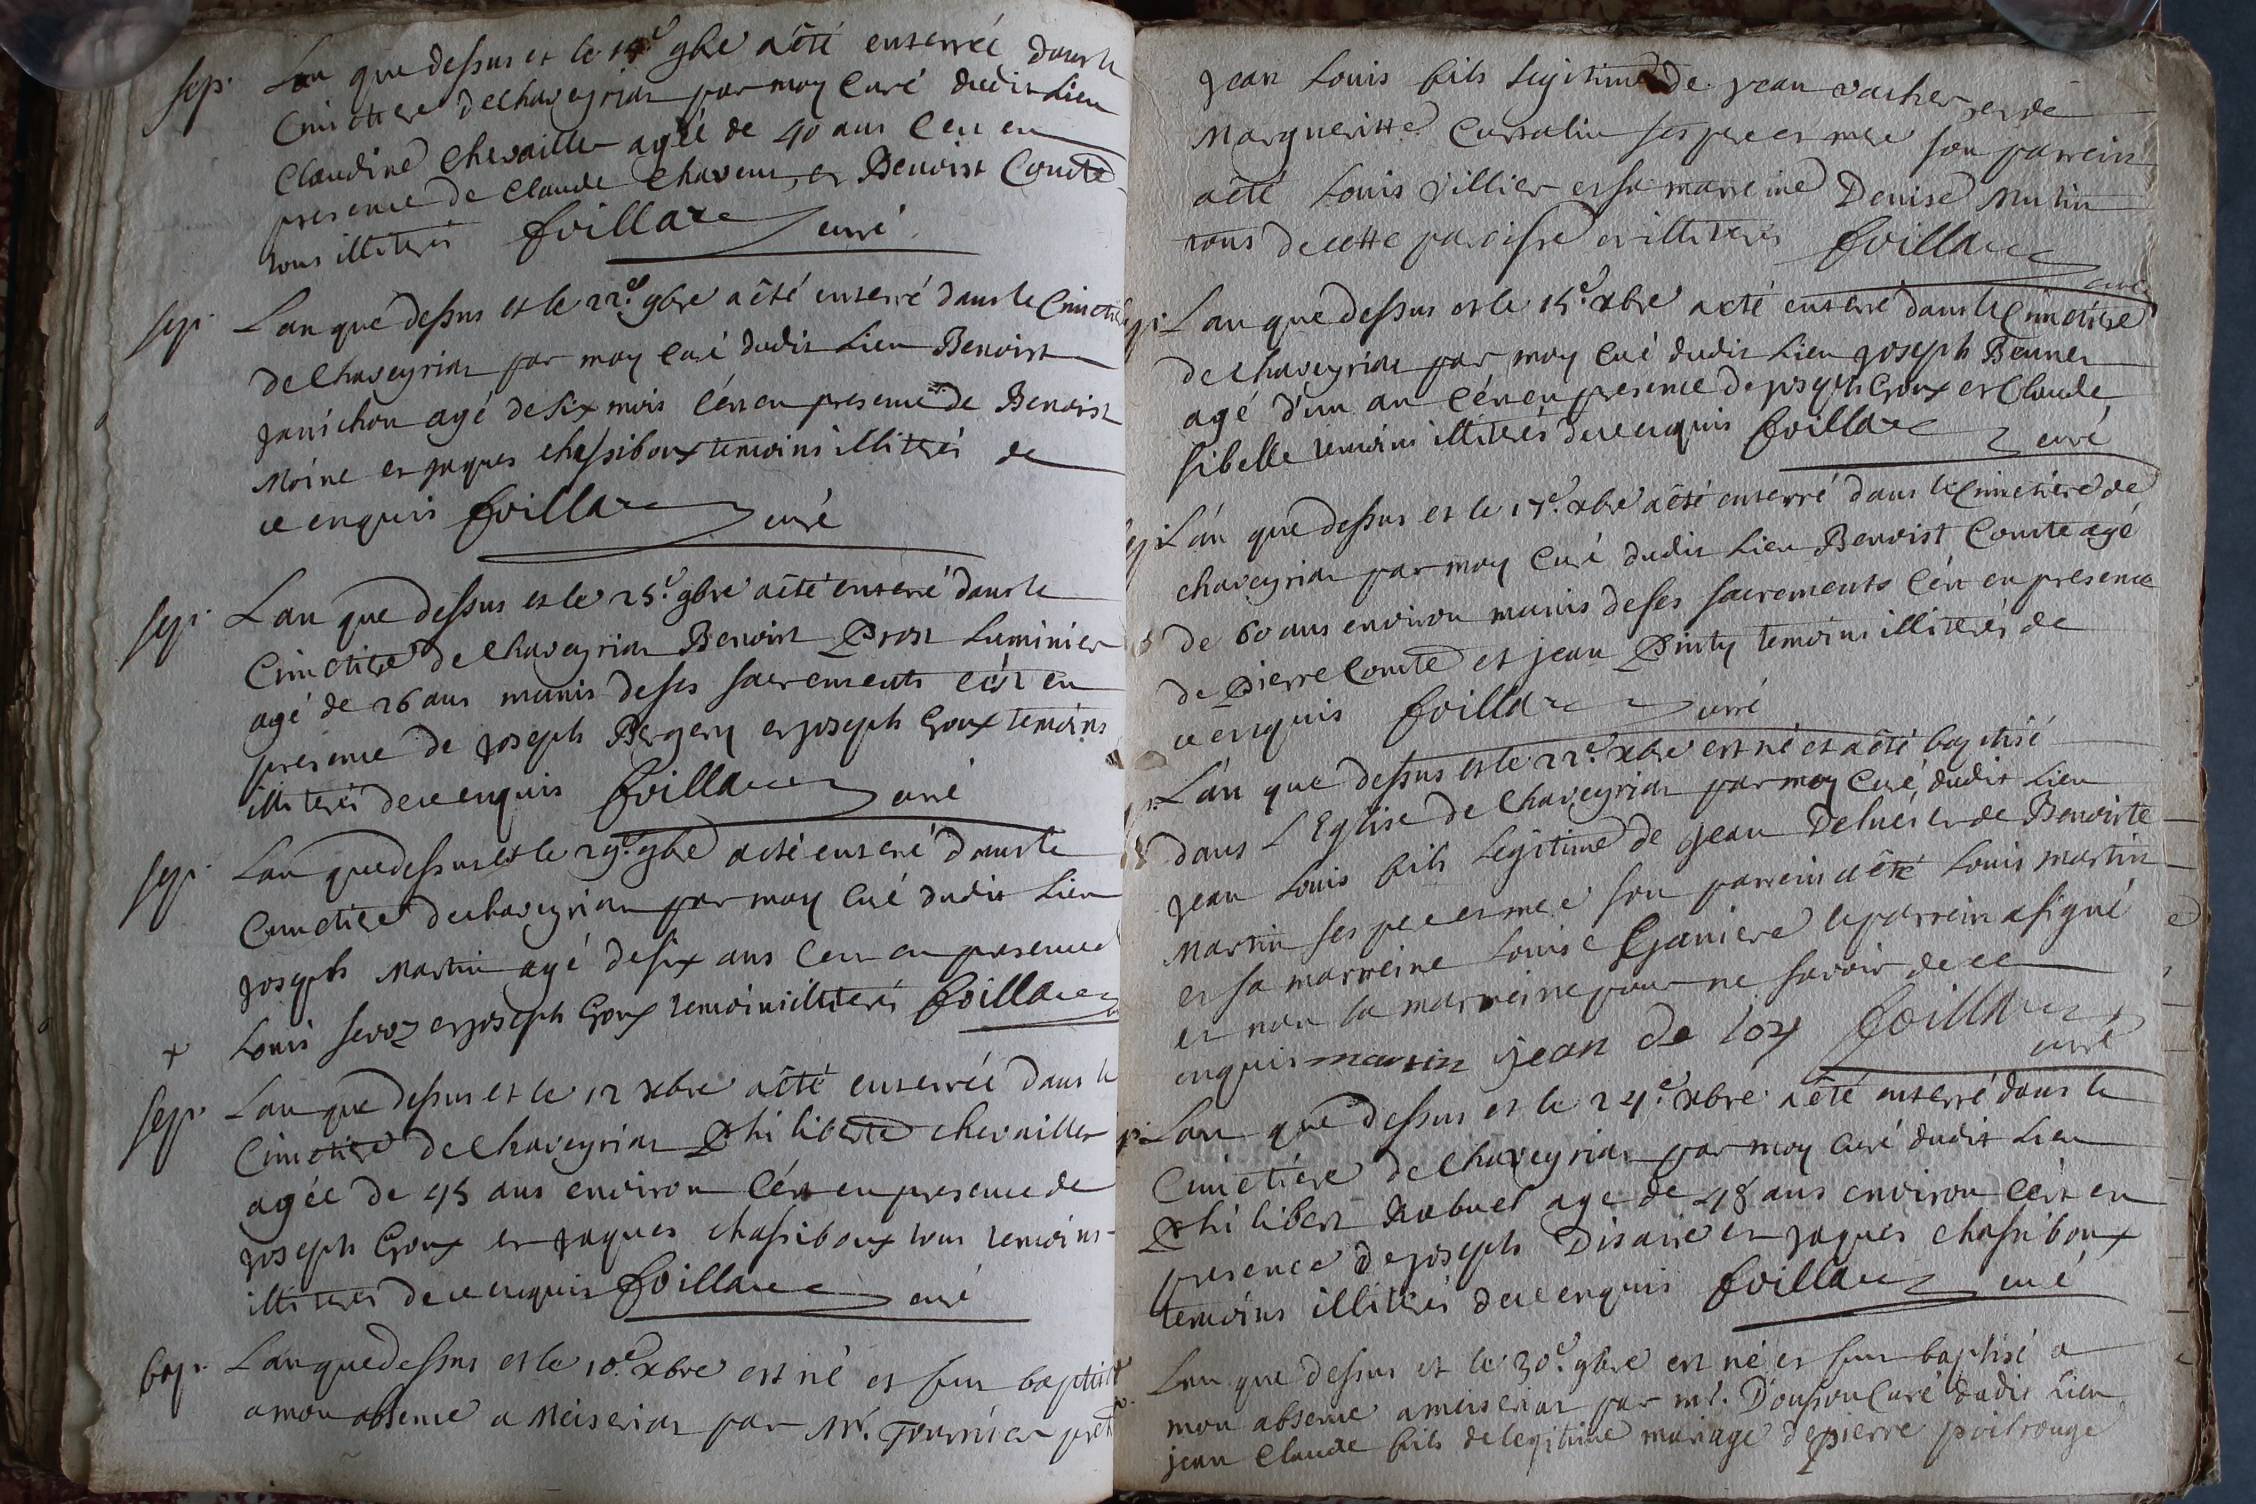 sep. Lan que dessus et le 14e 9bre a été enterrée dans le
Cimettiere de Chaveyriat par moy Curé dudit Lieu
Claudine Chevaillier agée de 40 ans Cert en
presence de Claude Chaveur et Benoist Comte
tous illiterés foillare curé
sep. Lan que dessus et le 22e 9bre a été enterré dans le Cimetiere
de Chaveyriat par moy Curé dudit Lieu Benoist
janichon agé de six mois Cért en presence de Benoist
Moine et jaques chassiboux temoins illiterés de
ce enquis foillare curé
sep. Lan que dessus et le 25e 9bre a été enterré dans le
Cimetiere de Chaveyriat Benoist Prost Luminier
agé de 26 ans munis de ses sacrements cért en
presence de joseph Bergery et joseph Groux temoins
illiterés de ce enquis foillare curé
sep. Lan que dessus et le 29e 9bre a été enterré dans le
Cimetiere de chaveyriat par moy Curé dudit Lieu
joseph Martin agé de six ans Cert en presence de
Louis Servoz et joseph Groux temoins illiterés foillare
+
sep. Lan que dessus et le 12 xbre a été enterrée dans le
Cimetiere de Chaveyriat Philiberte chevaillier
agée de 45 ans environ Cért en presence de
joseph Groux et jaques chassiboux tous temoins
illiterés de ce enquis foillare curé
bap. Lan que dessus et le 10e xbre est né et fut baptisé
a mon absence a Meiseriat par Mr. Tournier pret
jean Louis fils legitime de jean vacher et de
Margueritte Curralin ses pere et mere son parrein
a été Louis Villier et sa marreine Denise Mutin
tous de cette paroisse et illiterés foillare
curé
Lan que dessus et le 15e xbre a été enterré dans le Cimetiere
de chaveyriat par moy Curé dudit Lieu joseph Beunet
agé d'un an Cért en presence de joseph Groux et Claude
sibelle temoins illiterés de ce enquis foillare curé
Lan que dessus et le 17e xbre a été enterré dans le Cimetiere de
chaveyriat par moy Curé dudit Lieu Benoist Comte agé
de 60 ans environ munis de ses sacrements Cért en presence
de Pierre Comte et jean Pinty temoins illiterés de
ce enquis foillare curé
Lan que dessus et le 22e xbre est né et a été baptisé
dans L'Eglise de Chaveyriat par moy Curé dudit Lieu
jean Louis fils Legitime de jean Delués et de Benoiste
Martin ses pere et mere son parrein a été Louis martin
et sa marreine Louise Ganiere le parrein a signé
et non la marreine pour ne savoir de ce
enquis martin jean de loy foillare
curé
Lan que dessus et le 24e xbre a été enterré dans le
Cimetiere de Chaveyriat par moy Curé dudit Lieu
Philibert Rabuel agé de 48 ans environ Cért en
presence de joseph Disarie et jaques chassiboux
temoins illiterés de ce enquis foillare curé
Lan que dessus et le 30e 9bre est né et fut baptisé a
mon absence a meiseriat par mr. Dousson Curé dudit Lieu
jean Claude fils de legitime mariage de pierre poilrouge